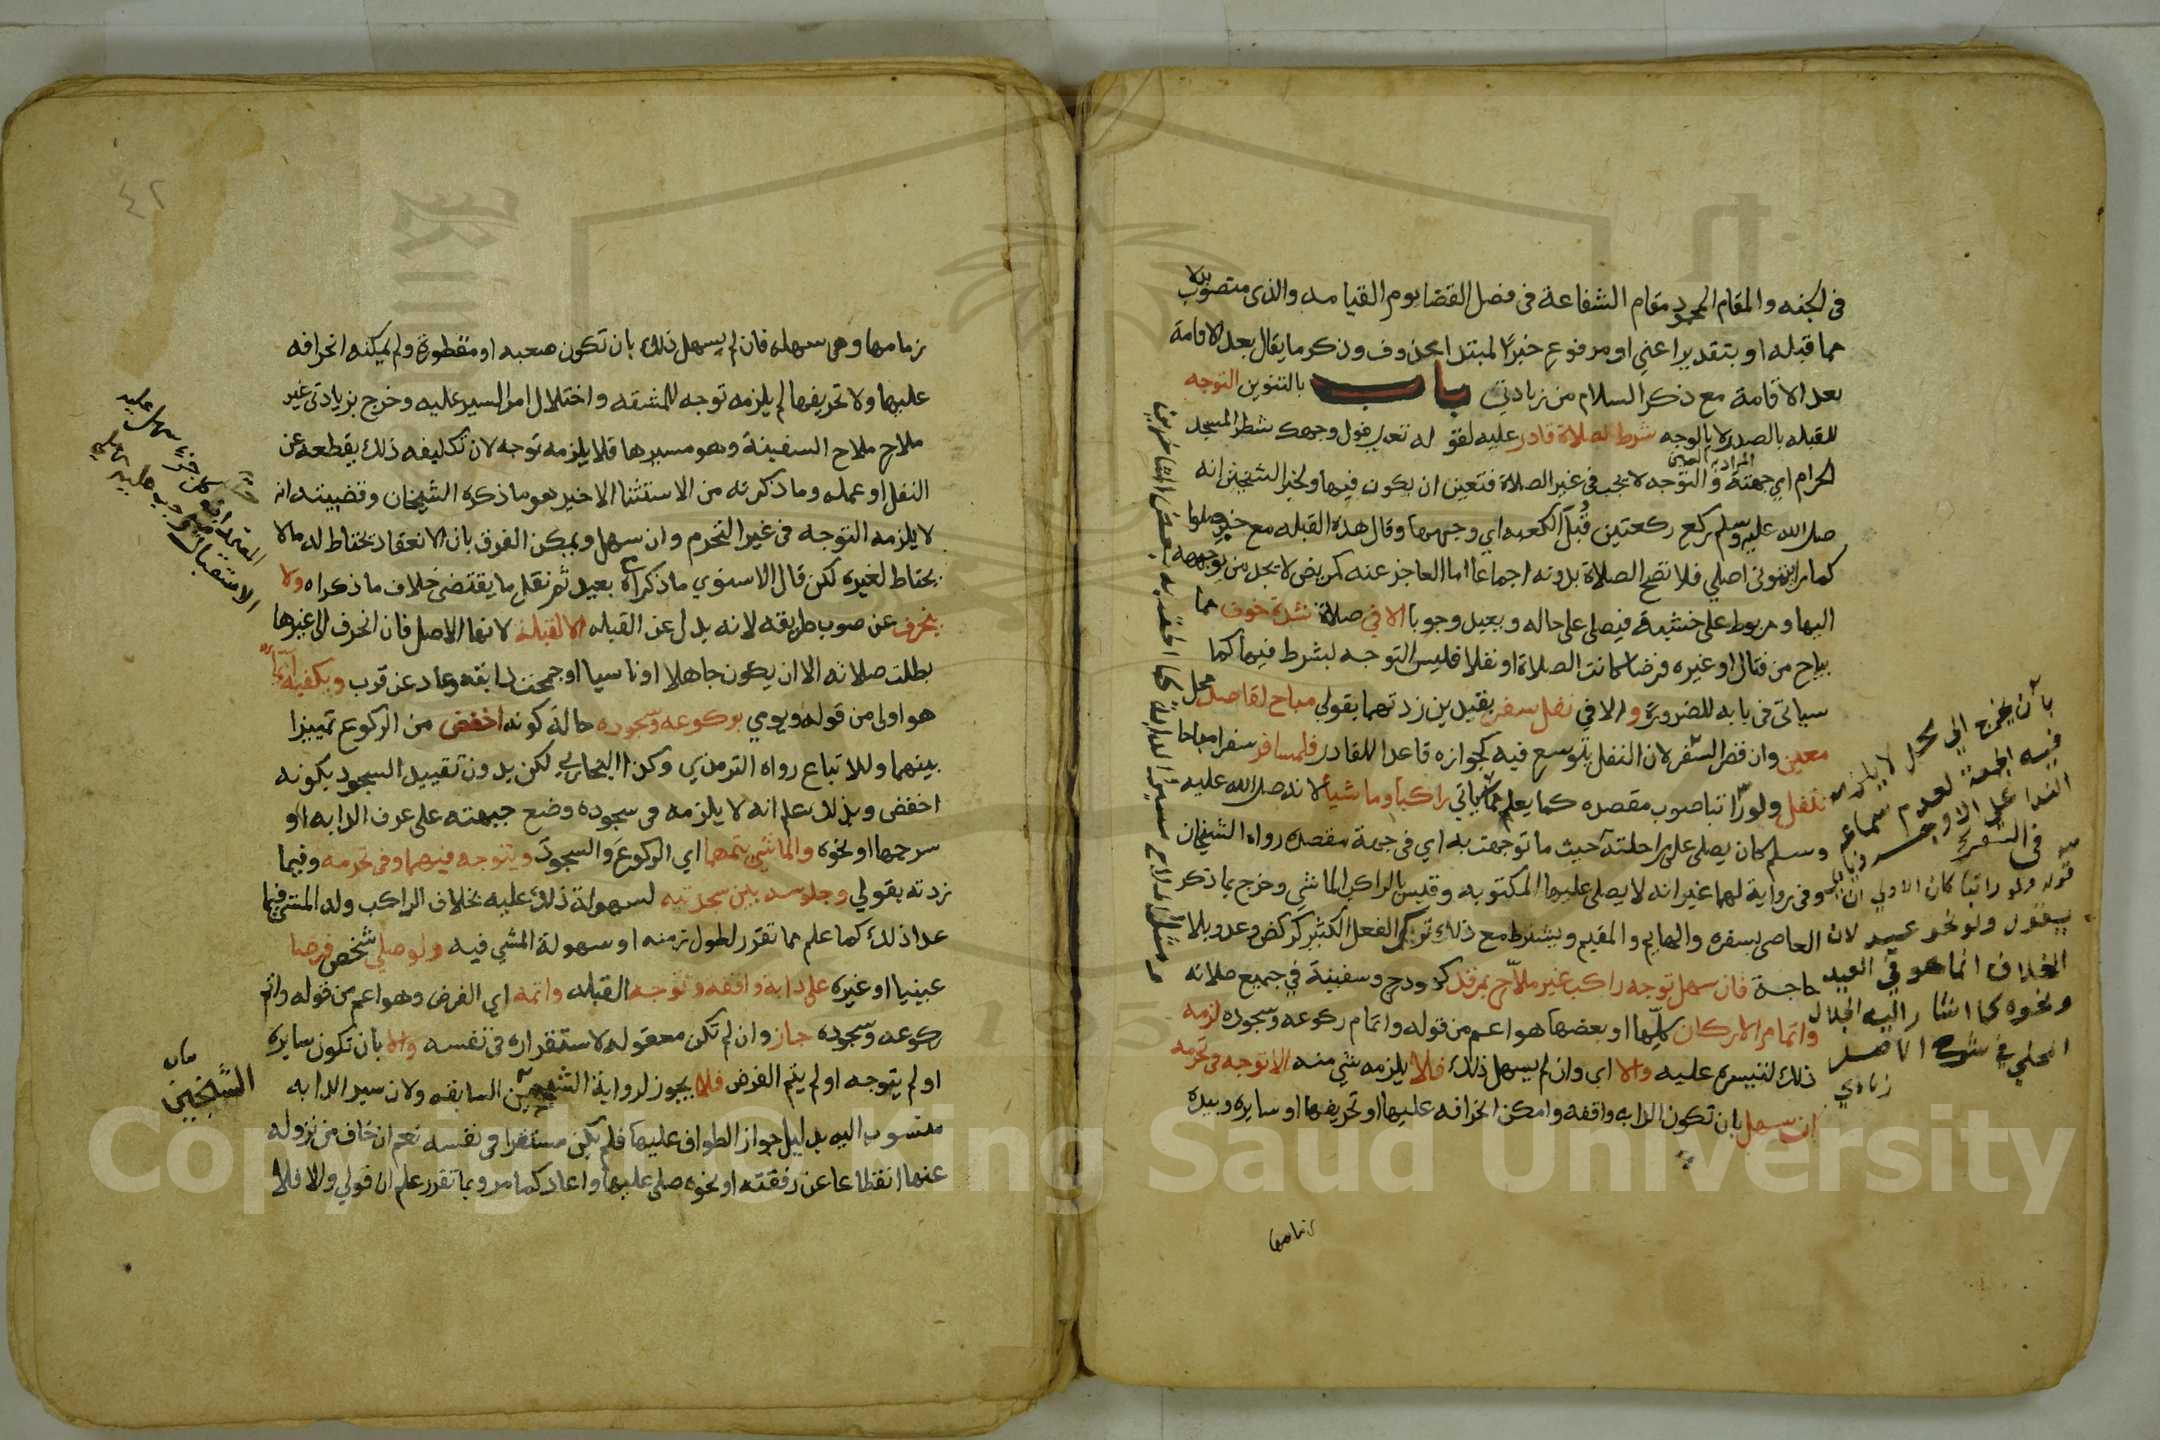 في الجنه والمقام المحمود مقام الشفاعة في فصل القضا يوم القيامه والذي منصوب بدلا
مما قبله او بتقدير اعني او مرفوع خبرًا لمبتدا محذوف وذكر ما يقال بعد الاقامة
بعد الاقامة مع ذكر السلام من زيادتي باب بالتنوين التوجه
للقبله بالصدر لا بالوجه شرط لصلاة قادر عليه لقوله تعالى فول وجهك شطر المسجد
الحرام اي جهته والتوجه لا يجب في غير الصلاة فتعين ان يكون فيها ولخبر الشيخين انه
المراد بها العين
صلى الله عليه وسلم ركع ركعتين قُبُلَ الكعبه اي وجهها وقال هذه القبله مع خبر صلوا
كما رايتموني اصلي فلا تصح الصلاة بدونه اجماعا اما العاجز عنه كمريض لا يجد من يوجهه
اليها ومربوط على خشبة فيصلي على حاله ويعيد وجوبا الا في صلاة شدة خوف مما
يباح من قتال او غيره فرضا كانت الصلاة او نفلا فليس التوجه بشرط فيها كما
سياتي في بابه للضرورة والا في نفل سفر بقيدين زدتهما بقولي مباح لقاصد محل
معين وان قصر السفر لان النفل يتوسع فيه كجوازه قاعدا للقادر فلمسافر سفرا مباحا
تنفل ولو راتبا صوب مقصده كما يعلم مما ياتي راكبا وماشيا لانه صلى الله عليه
وسلم كان يصلي على راحلته حيث ما توجهت به اي في جهة مقصده رواه الشيخان
وفي رواية لهما غير انه لا يصلي عليها المكتوبه وقيس بالراكب الماشي وخرج بما ذكر
العاصي بسفره والهايم والمقيم ويشترط مع ذلك ترك الفعل الكثير كركض وعدو بلا
حاجة فان سهل توجه راكب غير ملاّح بمرقد كهودج وسفينة في جميع صلاته
واتمام الاركان كلّها او بعضها هو اعم من قوله واتمام ركوعه وسجوده لزمه
ذلك لتيسره عليه والا اي وان لم يسهل ذلك فلا يلزمه شي منه الا توجه في تحرمه
ان سهل بان تكون الدابه واقفه وامكن انحرافه عليها او تحريفها او سايره وبيده
زمامها
بان يخرج الي محل لا يلزمه
فيه الجمعة لعدم سماعه
النداء علي الاوجه
في السفر
قوله ولو راتبا كان الاولي ان
يقول ولو نحو عيد لان
الخلاف انما هو في العيد
ونحوه كما اشار اليه الجلال
المحلي في شرح الاصل
زيادي
٤٢
زمامها وهي سهله فان لم يسهل ذلك بان تكون صعبه او مقطورة ولم يمكنه انحرافه
عليها ولا تحريفها لم يلزمه توجه للمشقه واختلال امر السير عليه وخرج بزيادتي غير
ملاح ملاح السفينة وهو مسيرها فلا يلزمه توجه لان تكليفه ذلك يقطعه عن
النفل او عمله وما ذكرته من الاستثنا الاخير هو ما ذكره الشيخان وقضيته انه
لا يلزمه التوجه في غير التحرم وان سهل ويمكن الفرق بان الانعقاد يحتاط له ما لا
يحتاط لغيره لكن قال الاسنوي ما ذكراه بعيد ثم نقل ما يقتضي خلاف ما ذكراه ولا
ينحرف عن صوب طريقه لانه بدل عن القبله الا لقبلة لانها الاصل فان انحرف الى غيرها
بطلت صلاته الا ان يكون جاهلا او ناسيا او جمحت دابته وعاد عن قرب ويكفيه ايماء
هو اولى من قوله ويومي بركوعه وسجوده حالة كونه اخفض من الركوع تمييزا
بينهما وللاتباع رواه الترمذي وكذا البخاري لكن بدون تقييد السجود بكونه
اخفض وبذلك علم انه لا يلزمه في سجوده وضع جبهته على عرف الدابه او
سرجها او نحوه والماشي يتمهما اي الركوع والسجود ويتوجه فيهما وفي تحرمه وفيما
زدته بقولي وجلوسه بين سجدتيه لسهولة ذلك عليه بخلاف الراكب وله المشي فيما
عدا ذلك كما علم مما تقرر لطول زمنه او سهولة المشي فيه ولو صلي شخص فرضا
عينيا او غيره على دابة واقفه وتوجه القبله واتمه اي الفرض وهو اعم من قوله واتم
ركوعه وسجوده جاز وان لم تكن معقوله لاستقراره في نفسه والا بان تكون سايره
او لم يتوجه او لم يتم الفرض فلا يجوز لرواية الشيخين السابقه ولان سير الدابه
منسوب اليه بدليل جواز الطواف عليها فلم يكن مستقرا في نفسه نعم ان خاف من نزوله
عنها انقطاعا عن رفقته او نحوه صلى عليها واعاد كما مر وبما تقرر علم ان قولي والا فلا
بيان
الشيخين